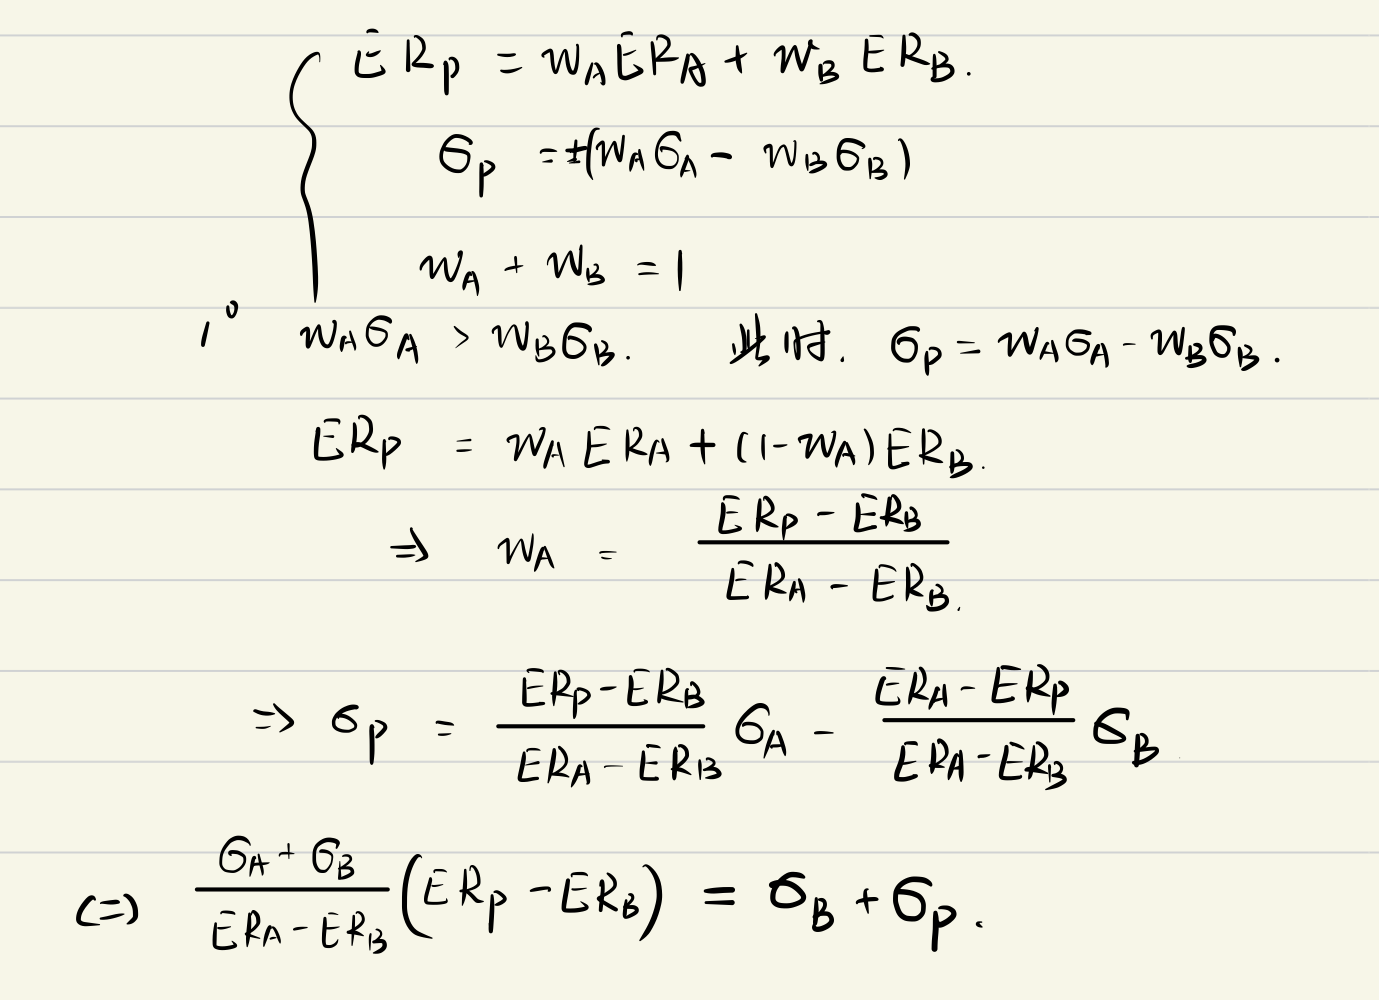 ER_P = w_A ER_A + w_B ER_B.
σ_P = ±(w_A σ_A - w_B σ_B)
w_A + w_B = 1
1° w_A σ_A > w_B σ_B. 此时. σ_P = w_A σ_A - w_B σ_B.
ER_P = w_A ER_A + (1-w_A) ER_B.
⇒ w_A = \frac{ER_P - ER_B}{ER_A - ER_B}.
⇒ σ_P = \frac{ER_P - ER_B}{ER_A - ER_B} σ_A - \frac{ER_A - ER_P}{ER_A - ER_B} σ_B
⇔ \frac{σ_A + σ_B}{ER_A - ER_B} (ER_P - ER_B) = σ_B + σ_P.